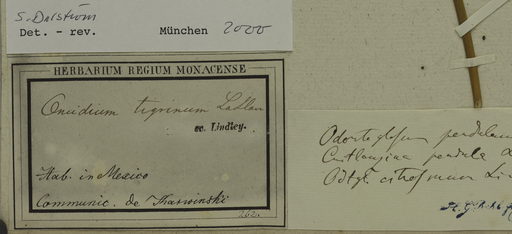 S. Dalström
Det. - rev. München 2000
HERBARIUM REGIUM MONACENSE
Oncidium tigrinum LaLlav
ex. Lindley.
Hab. in Mexico
Communic. de Karwinski
262.
Odontoglossum pendulum
Cuitlauzina pendula
Odtgl. citrosmum Lin